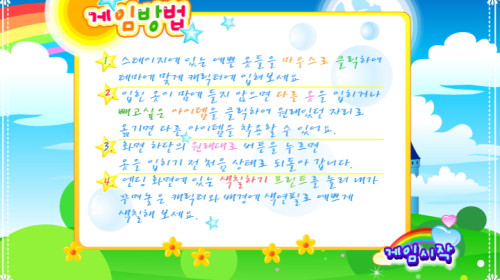 게임방법
1. 스테이지에 있는 예쁜 옷들을 마우스로 클릭하여
테마에 맞게 캐릭터에 입혀보세요.
2. 입힌 옷이 맘에 들지 않으면 다른 옷을 입히거나
빼고싶은 아이템을 클릭하여 원래있던 자리로
옮기면 다른 아이템을 착용할 수 있어요.
3. 화면 하단의 원래대로 버튼을 누르면
옷을 입히기 전 처음 상태로 되돌아 갑니다.
4. 엔딩 화면에 있는 색칠하기 프린트를 눌러 내가
꾸며놓은 캐릭터와 배경에 색연필로 예쁘게
색칠해 보세요.
게임시작